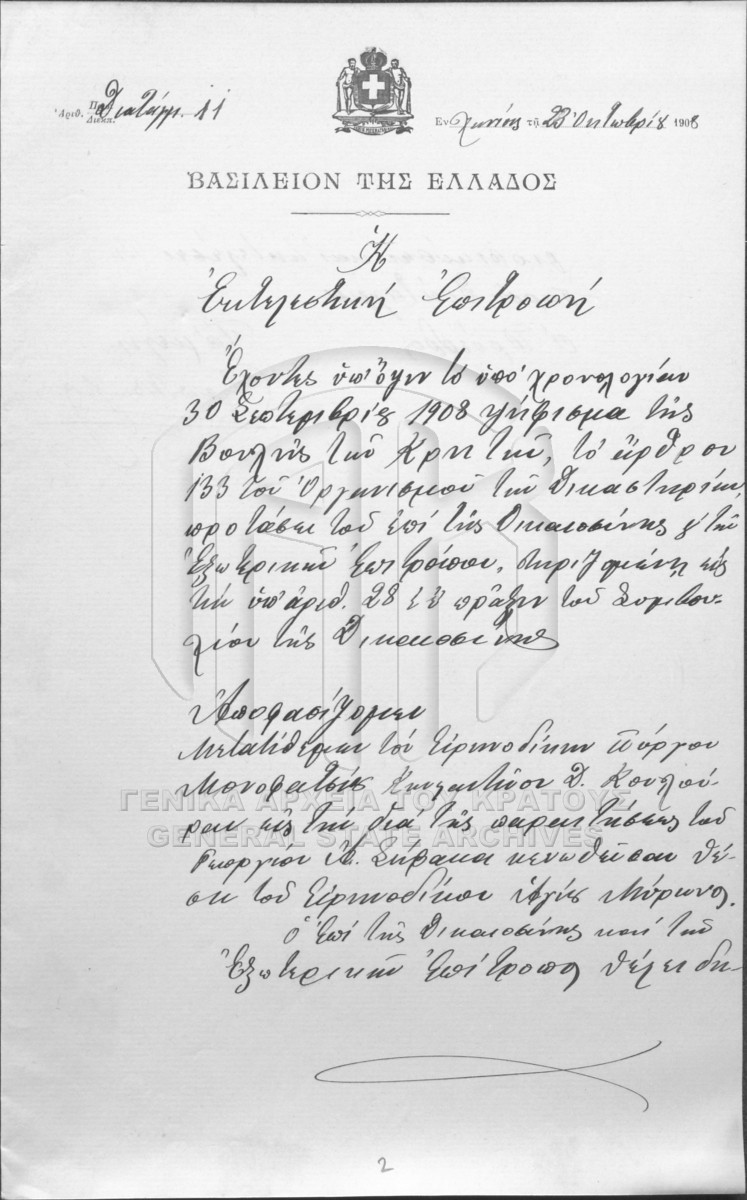 Ἀριθ. Πρ. Διεκπ. Διατάγμ. 11
Ἐν Χανίοις τῇ 23 Ὀκτωβρίου 1908
ΒΑΣΙΛΕΙΟΝ ΤΗΣ ΕΛΛΑΔΟΣ
Ἡ
Ἐκτελεστική Ἐπιτροπή
Ἔχοντες ὑπ' ὄψιν τό ὑπό χρονολογίαν
30 Σεπτεμβρίου 1908 ψήφισμα τῆς
Βουλῆς τῶν Κρητῶν, τό ἄρθρον
133 τοῦ Ὀργανισμοῦ τῶν Δικαστηρίων,
προτάσει τοῦ ἐπί τῆς Δικαιοσύνης καὶ τῶν
Ἐξωτερικῶν Ἐπιτρόπου, στηριζομένῃ εἰς
τήν ὑπ' ἀριθ. 28 πρᾶξιν τοῦ Συμβου-
λίου τῆς Δικαιοσύνης
Ἀποφασίζομεν
Μετατίθεμεν τόν Εἰρηνοδίκην Πύργου
Μονοφατσίου Κωνσταντῖνον Δ. Κουνλού-
ραν εἰς τήν διά τῆς παραιτήσεως τοῦ
Γεωργίου Α. Σήφακα κενωθεῖσαν θέ-
σιν τοῦ Εἰρηνοδίκου Ἁγίου Μύρωνος.
Ὁ ἐπί τῆς Δικαιοσύνης καί τῶν
Ἐξωτερικῶν Ἐπίτροπος θέλει δη-
ΓΕΝΙΚΑ ΑΡΧΕΙΑ ΤΟΥ ΚΡΑΤΟΥΣ
GENERAL STATE ARCHIVES
2